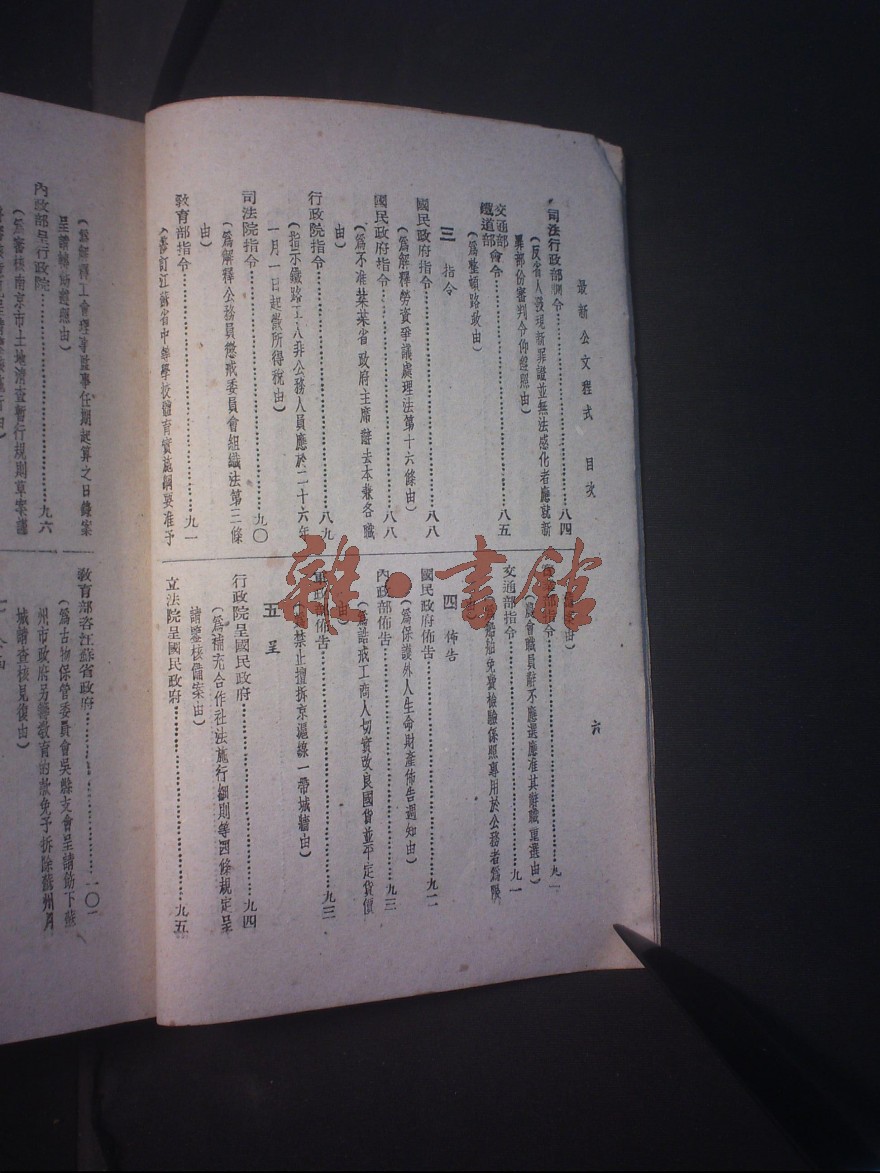 最新公文程式 目次
六
司法行政部訓令……八四
（反省人發現新罪證並無法感化者應就新
罪部份審判令仰經照由）
交通部
鐵道部會令……八五
（爲整頓路政由）
三 指令
國民政府指令……八八
（爲解釋勞資爭議處理法第十六條由）
國民政府指令……八八
（爲不准某某省政府主席辭去本兼各職
由）
行政院指令……八九
（指示鐵路工人非公務人員應於二十六年
一月一日起徵所得稅由）
司法院指令……九〇
（爲解釋公務員懲戒委員會組織法第三條
由）
教育部指令……九一
江蘇省中等學校體育實施綱要准予
由）
部指令……九一
會職員辭不應選應准其辭職重選由）
交通部指令……九一
船舶免費檢驗係照專用於公務者爲限
四 佈告
國民政府佈告……九二
（爲保護外人生命財產佈告週知由）
內政部佈告……九三
（爲誥戒工商人切實改良國貨並平定貨價
由）
政部佈告……九三
禁止擅拆京滬線一帶城牆由）
五 呈
行政院呈國民政府……九四
（爲補充合作社法施行細則等四條規定呈
請鑒核備案由）
立法院呈國民政府……九五
（爲解釋工會理事監事任期起算之日錄案
呈請轉由）
內政部呈行政院……九六
（爲審核南京市土地清查暫行規則草案謹
教育部咨江蘇省政府……一〇一
（爲古物保管委員會吳縣支會呈請飭下蘇
州市政府另籌教育的款免予拆除蘇州月
城請查核見復由）
雜·書館